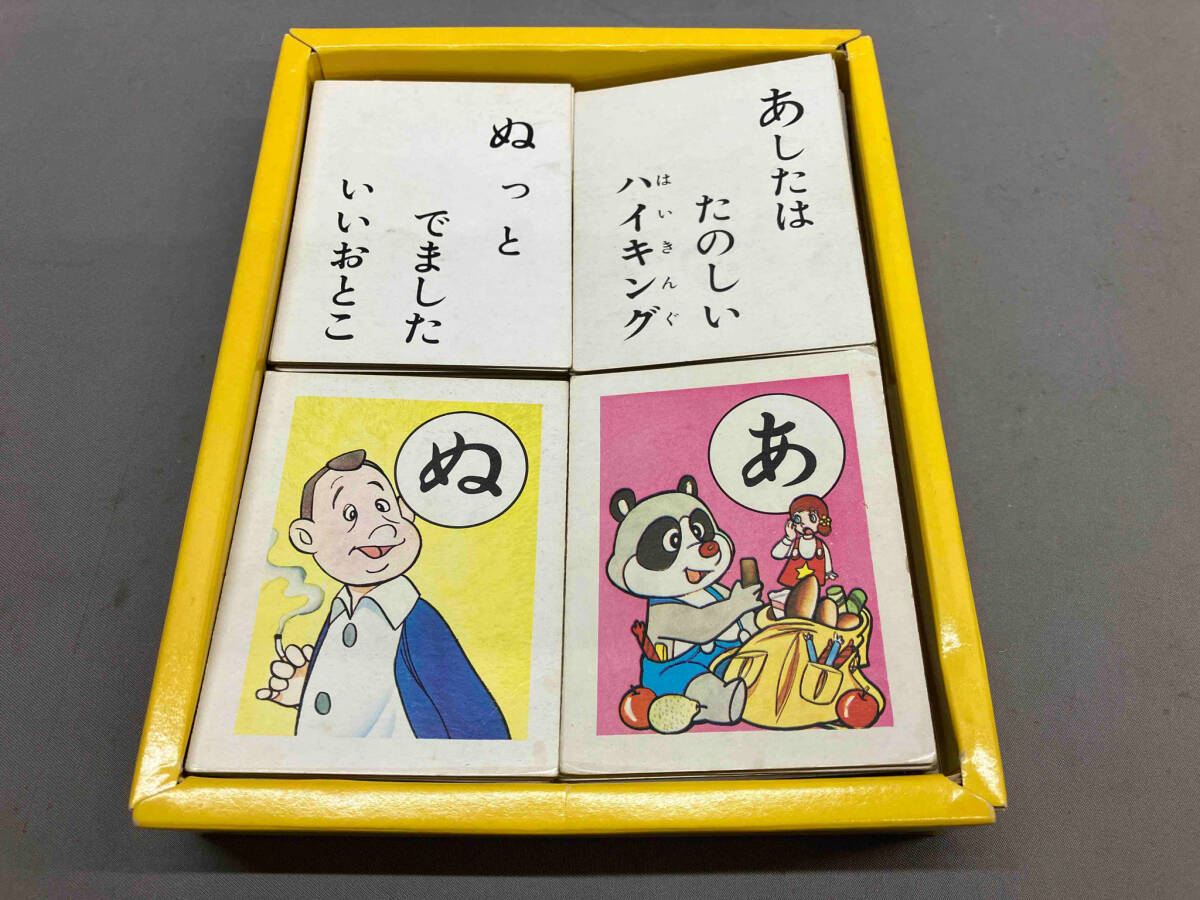 あしたは
たのしい
ハイキング
はいきんぐ
ぬっと
でました
いいおとこ
あ
ぬ